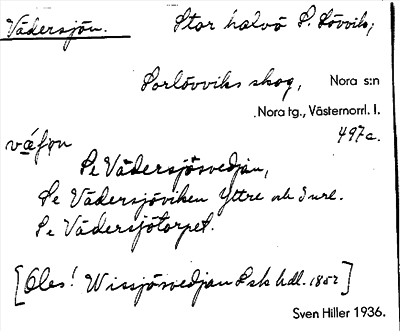 Vädersjön. Stor halvö S. Lövvik,
Sörlövviks skog, Nora s:n
Nora tg., Västernorrl. l.
497a.
Se Vädersjösvedjan,
Se Vädersjöviken Yttre och Inre.
Se Vädersjötorpet.
[Obs! Wissjösvedjan Lsk hdl. 1852]
Sven Hiller 1936.